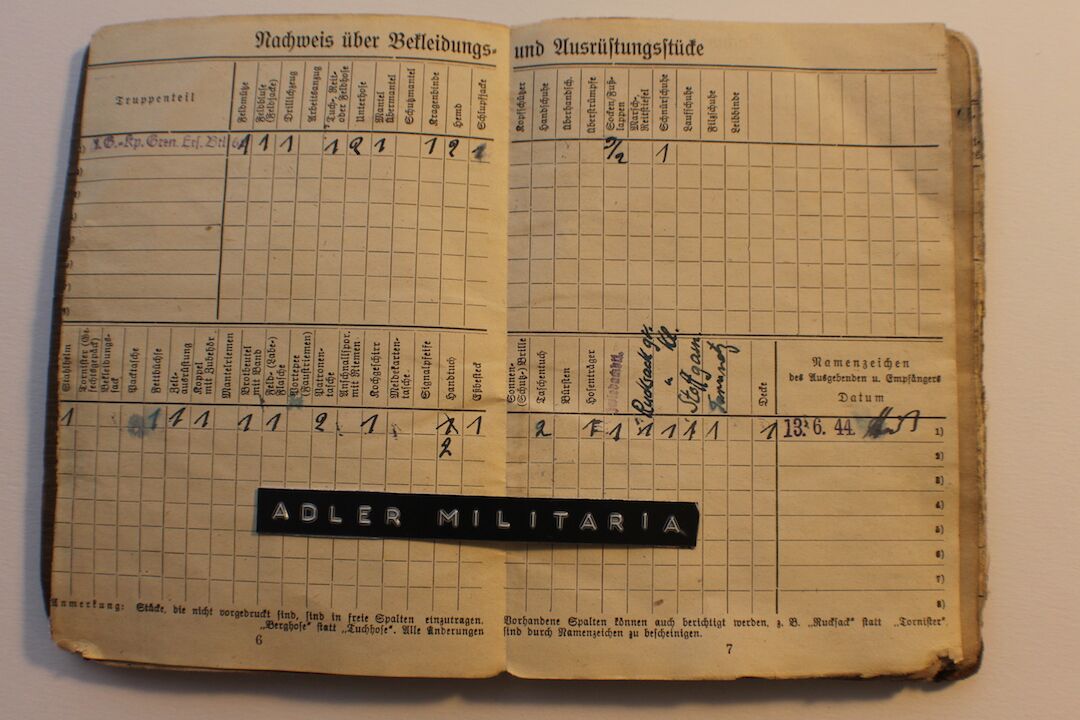 Nachweis über Bekleidungs- und Ausrüstungsstücke
Truppenteil
Feldmütze
Feldbluse (Feldjacke)
Drillichzeug
Arbeitsanzug
Tuch-, Reit- oder Feldhose
Unterhose
Mantel Übermantel
Schutzmantel
Kragenbinde
Hemd
Schlupfjacke
Kopfschützer
Handschuhe
Überhandsch.
Überstrümpfe
Socken/Fuß-lappen
Marsch-, Reitstiefel
Schnürschuhe
Laufschuhe
Filzschuhe
Leibbinde
G.-Kp. Gren. Ers. Btl
1 1 1 1 2 1 1 2 1 2/2 1
Stahlhelm
Tornister
Bekleidungs-sack
Packtasche
Fettbüchse
Zelt-ausrüstung
Koppel mit Zubehör
Mantelriemen
Brotbeutel mit Band
Feld- (Labe-) Flasche
Portepee (Faustriemen)
Patronen-tasche
Anschnallspor. mit Riemen
Kochgeschirr
Meldekarten-tasche
Signalpfeife
Handtuch
Eßbesteck
Sonnen- (Schutz-) Brille
Taschentuch
Bürsten
Hosenträger
Rucksack gr.
u Kl.
Tarnnetz
Decke
Namenzeichen
des Ausgebenden u. Empfängers
Datum
1 1 1 1 1 1 1 2 1 1 1 2 1 1 1 1 1 1 1 13. 6. 44 1)
2 2)
3)
4)
ADLER MILITARIA
5)
6)
7)
8)
Anmerkung: Stücke, die nicht vorgedruckt sind, sind in freie Spalten einzutragen. Vorhandene Spalten können auch berichtigt werden, z. B. „Rucksack" statt „Tornister".
„Berghose" statt „Tuchhose". Alle Änderungen sind durch Namenzeichen zu bescheinigen.
6
7